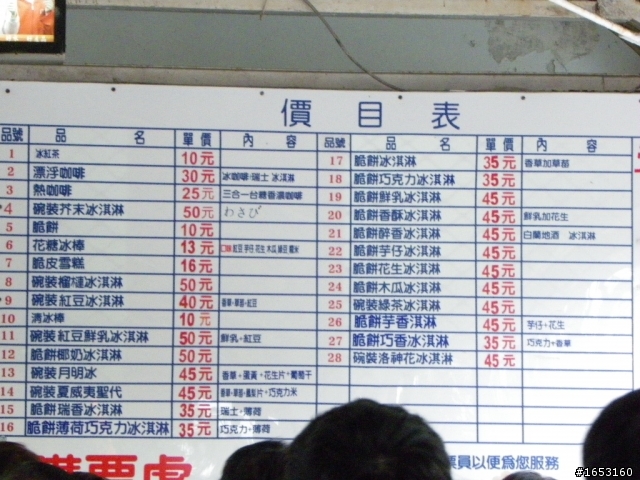 價目表
品號 品名 單價 內容 品號 品名 單價 內容
1 冰紅茶 10元
2 漂浮咖啡 30元 冰咖啡+瑞士 冰淇淋
3 熱咖啡 25元 三合一台糖香濃咖啡
4 碗裝芥末冰淇淋 50元 わさび
5 脆餅 10元
6 花糖冰棒 13元 紅豆 芋仔 花生 木瓜 綠豆 糯米
7 脆皮雪糕 16元
8 碗裝榴槤冰淇淋 50元
9 碗裝紅豆冰淇淋 40元 香草+草部+紅豆
10 清冰棒 10元
11 碗裝紅豆鮮乳冰淇淋 50元 鮮乳+紅豆
12 脆餅椰奶冰淇淋 50元
13 碗裝月明冰 45元 香草+蛋黃+花生片+葡萄干
14 碗裝夏威夷聖代 45元 香草+草部+鳳梨片+巧克力米
15 脆餅瑞香冰淇淋 35元 瑞士+薄荷
16 脆餅薄荷巧克力冰淇淋 35元 巧克力+薄荷
17 脆餅冰淇淋 35元 香草加草部
18 脆餅巧克力冰淇淋 35元
19 脆餅鮮乳冰淇淋 45元
20 脆餅香酥冰淇淋 45元 鮮乳加花生
21 脆餅醉香冰淇淋 45元 白蘭地酒 冰淇淋
22 脆餅芋仔冰淇淋 45元
23 脆餅花生冰淇淋 45元
24 脆餅木瓜冰淇淋 45元
25 碗裝綠茶冰淇淋 45元
26 脆餅芋香淇淋 45元 芋仔+花生
27 脆餅巧香冰淇淋 35元 巧克力+香草
28 碗裝洛神花冰淇淋 45元
票員以便為您服務
#1653160